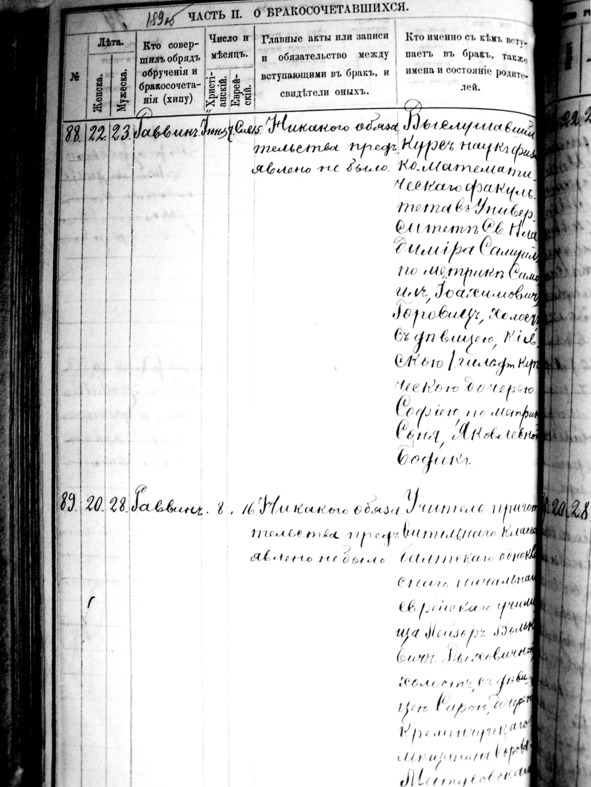 ЧАСТЬ II. О БРАКОСОЧЕТАВШИХСЯ.
№
Лѣта.
Женска.
Мужеска.
Кто совер-
шилъ обрядъ
обрученія и
бракосочета-
нія (хипу)
Число и
мѣсяцъ.
Христі-
анскій.
Еврей-
скій.
Главные акты или записи
и обязательство между
вступающими въ бракъ, и
свидѣтели оныхъ.
Кто именно съ кѣмъ всту-
паетъ въ бракъ, также
имена и состояніе родите-
лей.
88. 22. 23. Раввинъ
Никакого обяза
тельства предъ
явлено не было.
Выслушавшій
Курсъ наукъ физ
ко математи-
ческаго факуль-
тета въ Универ-
ситетѣ Св. Вла
диміра Самуилъ
по метрикѣ Само
илъ, Іоахимовичъ
Горовицъ, холостъ
съ дѣвицею, Кіев-
скою
ческою дочерью
Софіею, по метрик
Соня, Яковлевной
Бодикъ.
89. 20. 28. Раввинъ. 8. 16
Никакого обяза
тельства предъ
явлено не было
Учитель пригот
вительнаго класса
балтскаго
скаго начальнаго
еврейскаго учили
ща Лейзоръ Вольк
вичъ
холостъ, съ дѣви-
цею
Кременчугскаго
20. 28